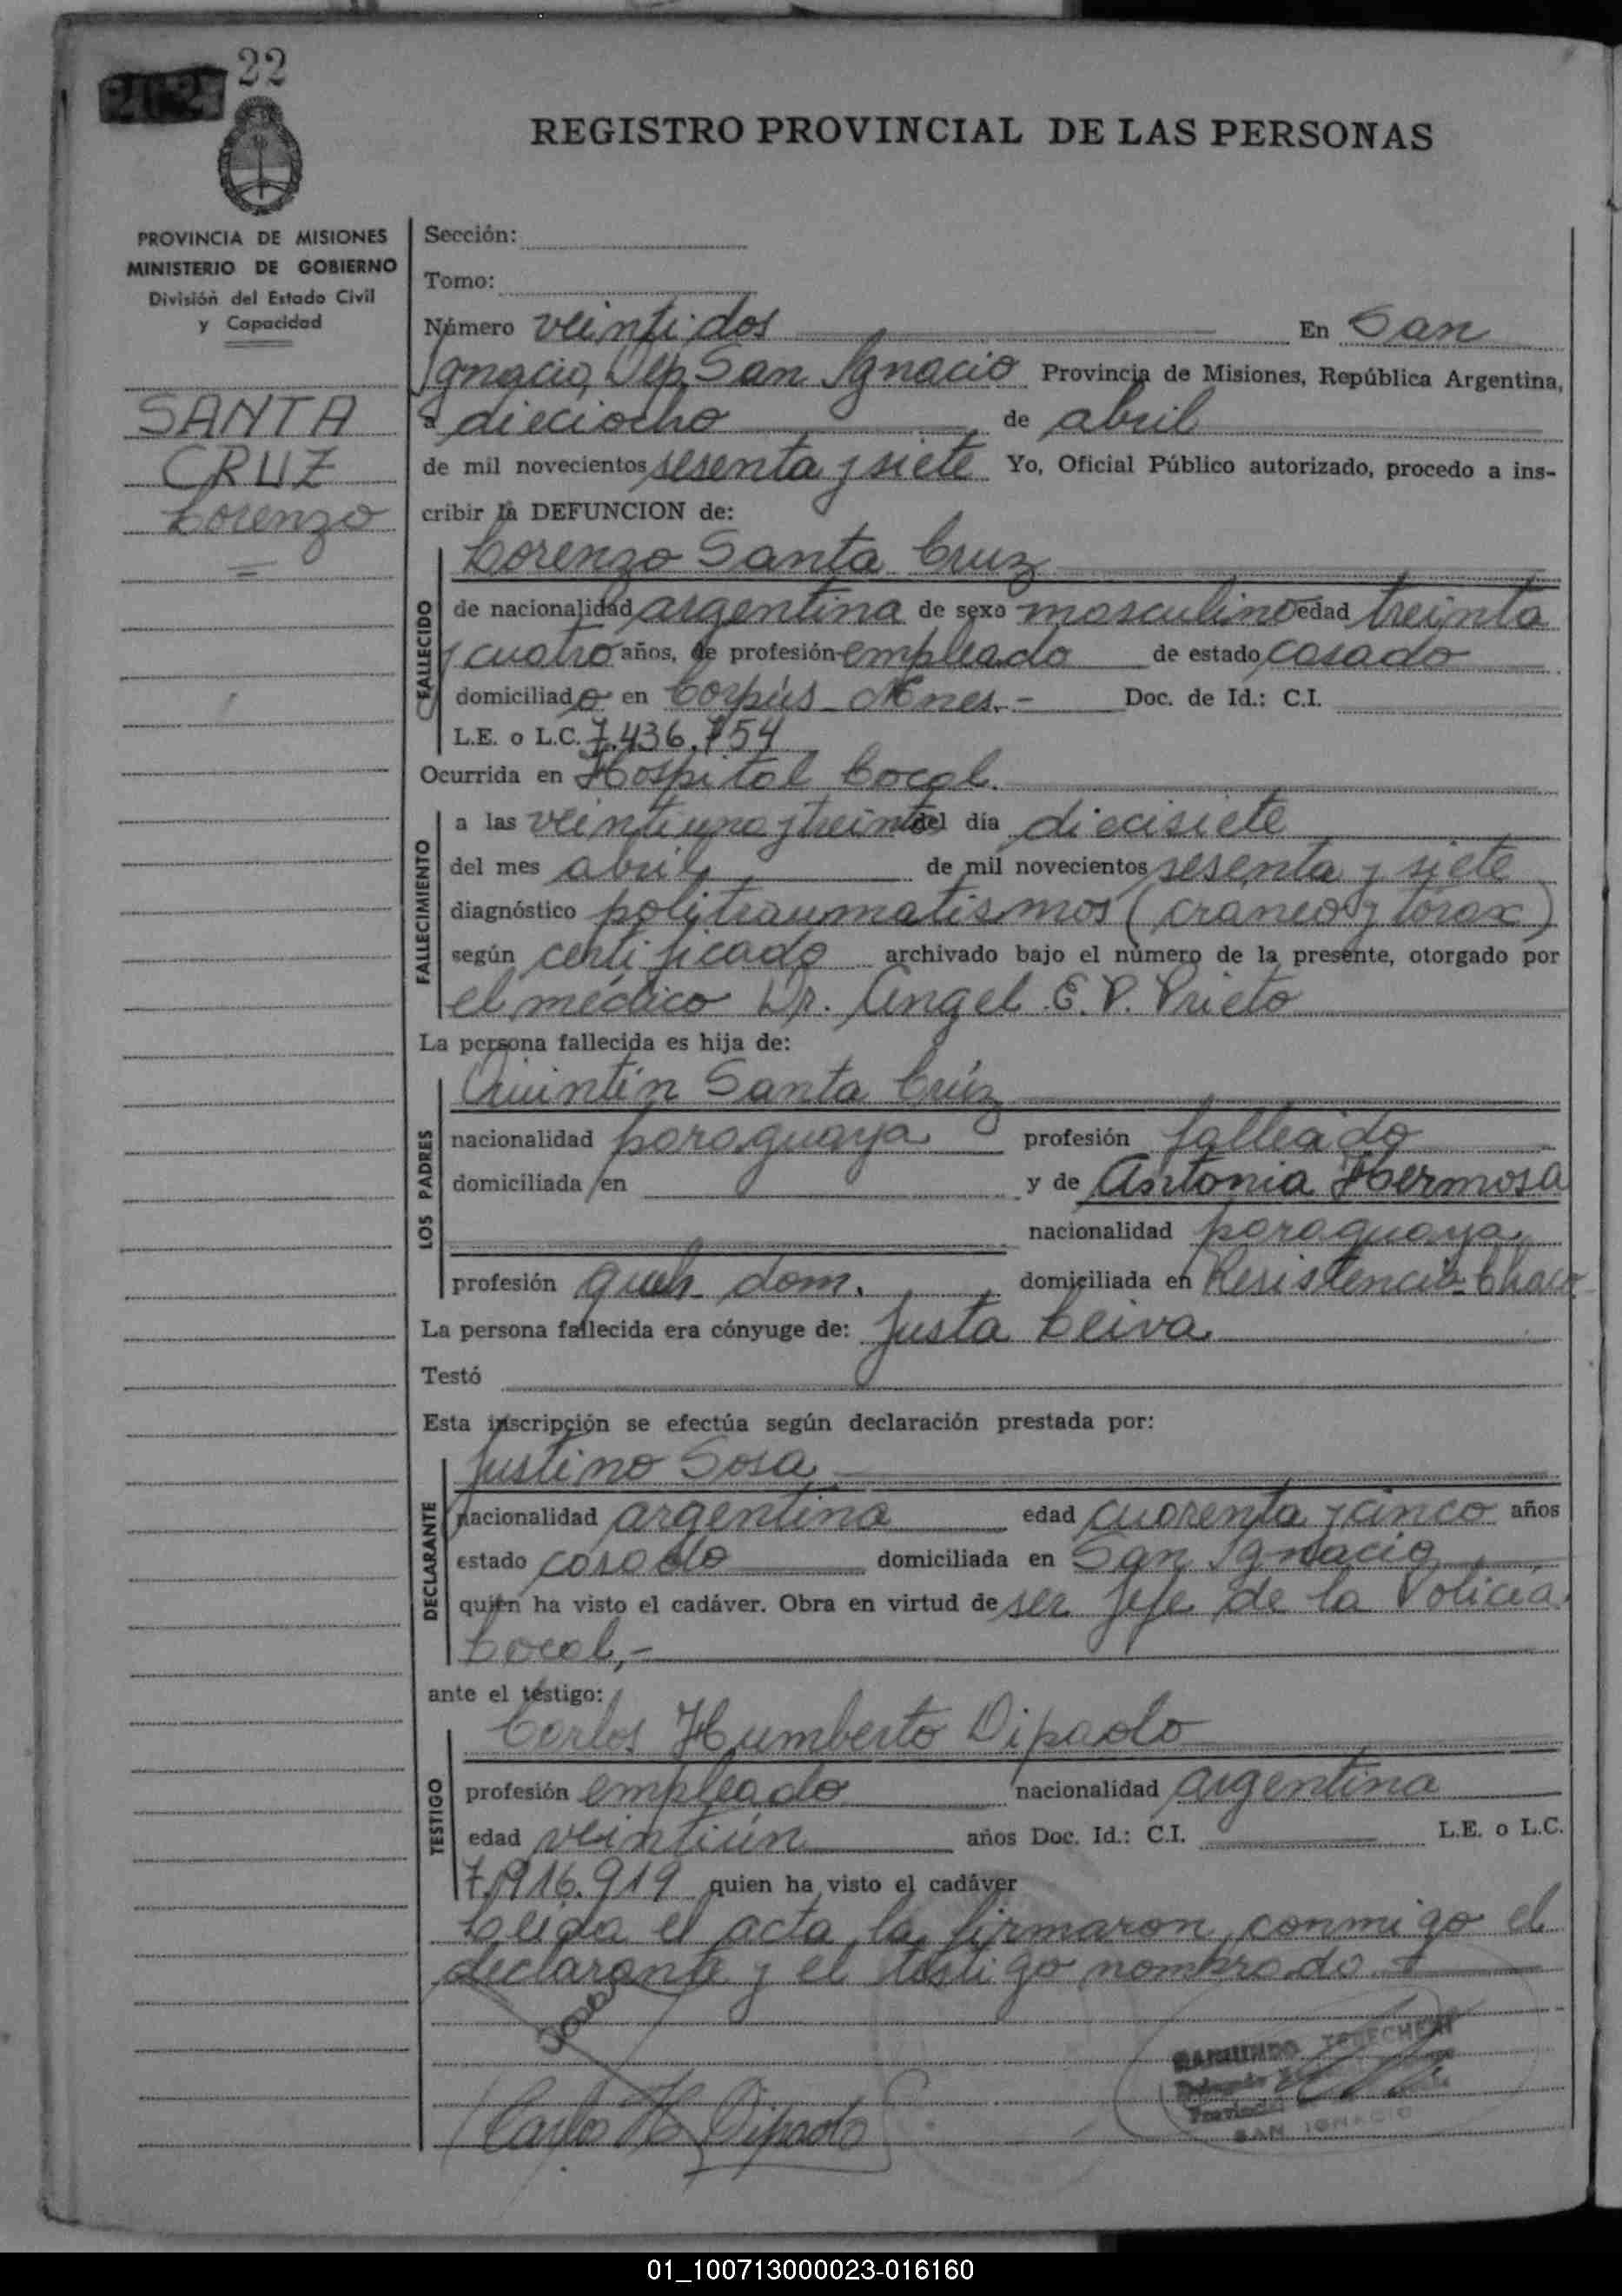 22
REGISTRO PROVINCIAL DE LAS PERSONAS
PROVINCIA DE MISIONES
MINISTERIO DE GOBIERNO
División del Estado Civil
y Capacidad
SANTA
CRUZ
Lorenzo
Sección:
Tomo:
Número veinti dos En San
Ignacio, Dep. San Ignacio Provincia de Misiones, República Argentina,
a dieciocho de abril
de mil novecientos sesenta y siete Yo, Oficial Público autorizado, procedo a ins-
cribir la DEFUNCION de:
Lorenzo Santa Cruz
FALLECIDO
de nacionalidad argentina de sexo masculino edad treinta
y cuatro años, de profesión empleado de estado casado
domiciliado en Corpús Mnes.- Doc. de Id.: C.I.
L.E. o L.C. 7.436.754
Ocurrida en Hospital Local.
FALLECIMIENTO
a las veintiuna y treinta del día diecisiete
del mes abril de mil novecientos sesenta y siete
diagnóstico politraumatismos (craneo y torax)
según certificado archivado bajo el número de la presente, otorgado por
el médico Dr. Angel E.P. Prieto
La persona fallecida es hija de:
Quintín Santa Crúz
LOS PADRES
nacionalidad paraguaya profesión falleado
domiciliada en y de Antonia Hermosa
nacionalidad paraguaya
profesión queh. dom. domiciliada en Resistencia-Chaco
La persona fallecida era cónyuge de: Justa Leiva
Testó
Esta inscripción se efectúa según declaración prestada por:
Justino Sosa
DECLARANTE
nacionalidad argentina edad cuarenta y cinco años
estado casado domiciliada en San Ignacio
quien ha visto el cadáver. Obra en virtud de ser Jefe de la Policía
Local,-
ante el testigo:
Carlos Humberto Dipaolo
TESTIGO
profesión empleado nacionalidad argentina
edad veintiún años Doc. Id.: C.I. L.E. o L.C.
7.916.919 quien ha visto el cadáver
Leida el acta la firmaron conmigo el
declarante y el testigo nombrado.
Carlos H. Dipaolo
RAIMUNDO
SAN IGNACIO
01_100713000023-016160